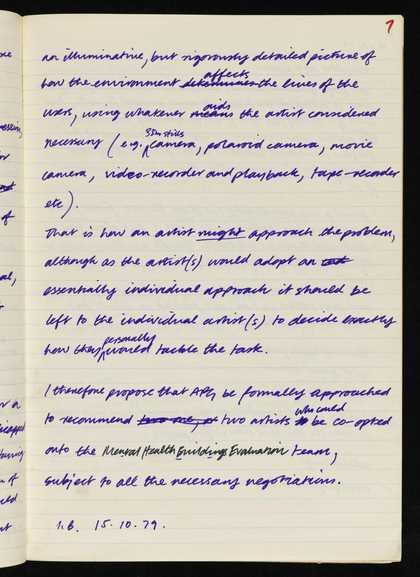 7
an illuminative, but rigorously detailed picture of
how the environment determines affects the lives of the
users, using whatever means aids the artist considered
necessary (e.g. 35m stills camera, polaroid camera, movie
camera, video-recorder and playback, tape-recorder
etc).
That is how an artist might approach the problem,
although as the artist(s) would adopt an
essentially individual approach it should be
left to the individual artist(s) to decide exactly
how they personally would tackle the task.
I therefore propose that APG be formally approached
to recommend two artists who could be co-opted
onto the Mental Health Buildings Evaluation team,
subject to all the necessary negotiations.
I.B. 15.10.79.